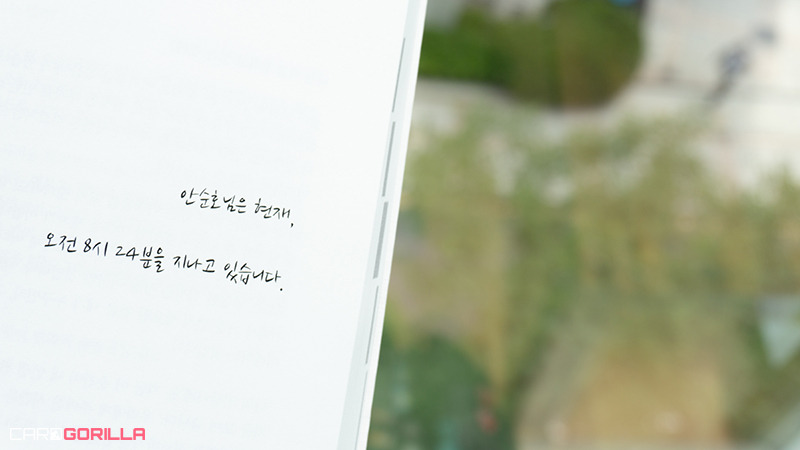 안순호님은 현재,
오전 8시 24분을 지나고 있습니다.
CARD GORILLA